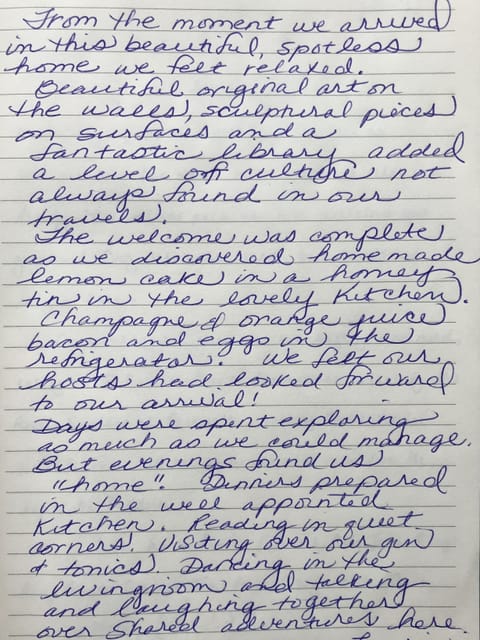 From the moment we arrived
in this beautiful, spotless
home we felt relaxed.
Beautiful original art on
the walls, sculptural pieces
on surfaces and a
fantastic library added
a level of culture not
always found in our
travels.
The welcome was complete
as we discovered homemade
lemon cake in a homey
tin in the lovely kitchen.
Champagne & orange juice
bacon and eggs in the
refrigerator. We felt our
hosts had looked forward
to our arrival!
Days were spent exploring
as much as we could manage.
But evenings found us
"home". Dinners prepared
in the well appointed
kitchen. Reading in quiet
corners. Visiting over our gin
& tonics. Dancing in the
livingroom and talking
and laughing together
over shared adventures here.